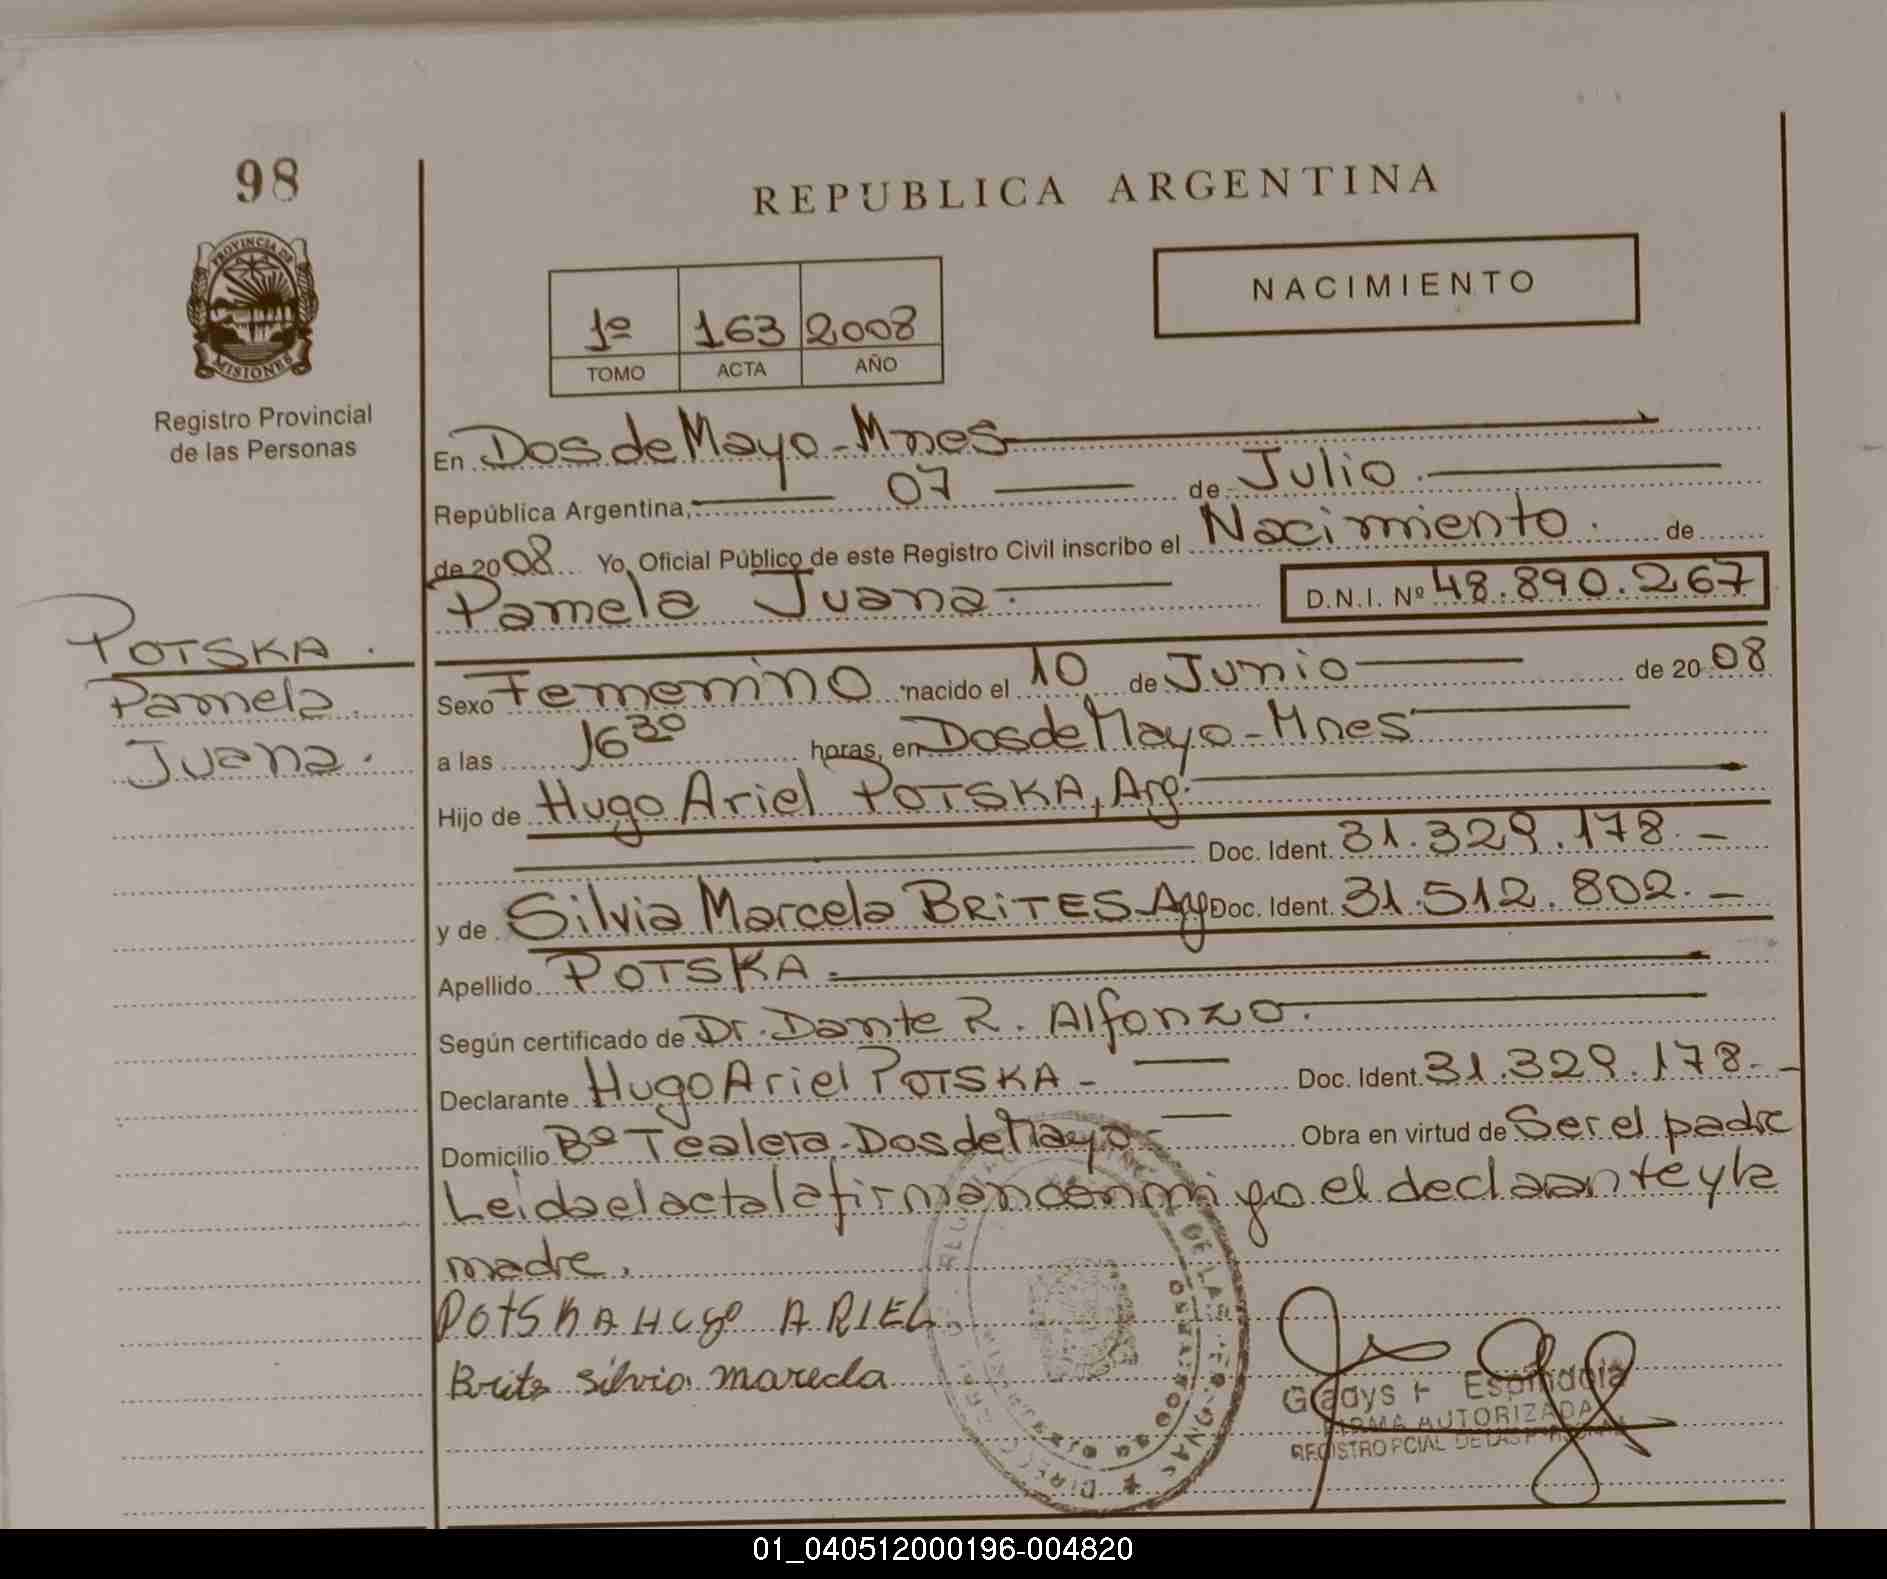 98
PROVINCIA DE
MISIONES
Registro Provincial
de las Personas
REPUBLICA ARGENTINA
NACIMIENTO
1º 163 2008
TOMO ACTA AÑO
En Dos de Mayo - Mnes
República Argentina, 07 de Julio
de 2008 Yo, Oficial Público de este Registro Civil inscribo el Nacimiento de
Pamela Juana D.N.I. Nº 48.890.267
POTSKA.
Pamela
Juana.
Sexo Femenino nacido el 10 de Junio de 2008
a las 16 30 horas, en Dos de Mayo - Mnes
Hijo de Hugo Ariel POTSKA, Arg.
Doc. Ident. 31.329.178.-
y de Silvia Marcela BRITES Arg Doc. Ident. 31.512.802.-
Apellido POTSKA.
Según certificado de Dr. Dante R. Alfonzo.
Declarante Hugo Ariel POTSKA - Doc. Ident. 31.329.178.-
Domicilio Bº Tealera - Dos de Mayo - Obra en virtud de Ser el padre
Leida el acta la firman conmigo el declaante y la
madre.
POTSKA HUgo ARIEL
Brites silvia marcela
Gladys Espindola
FIRMA AUTORIZADA
REGISTRO PCIAL DE LAS PERSONAS
01_040512000196-004820